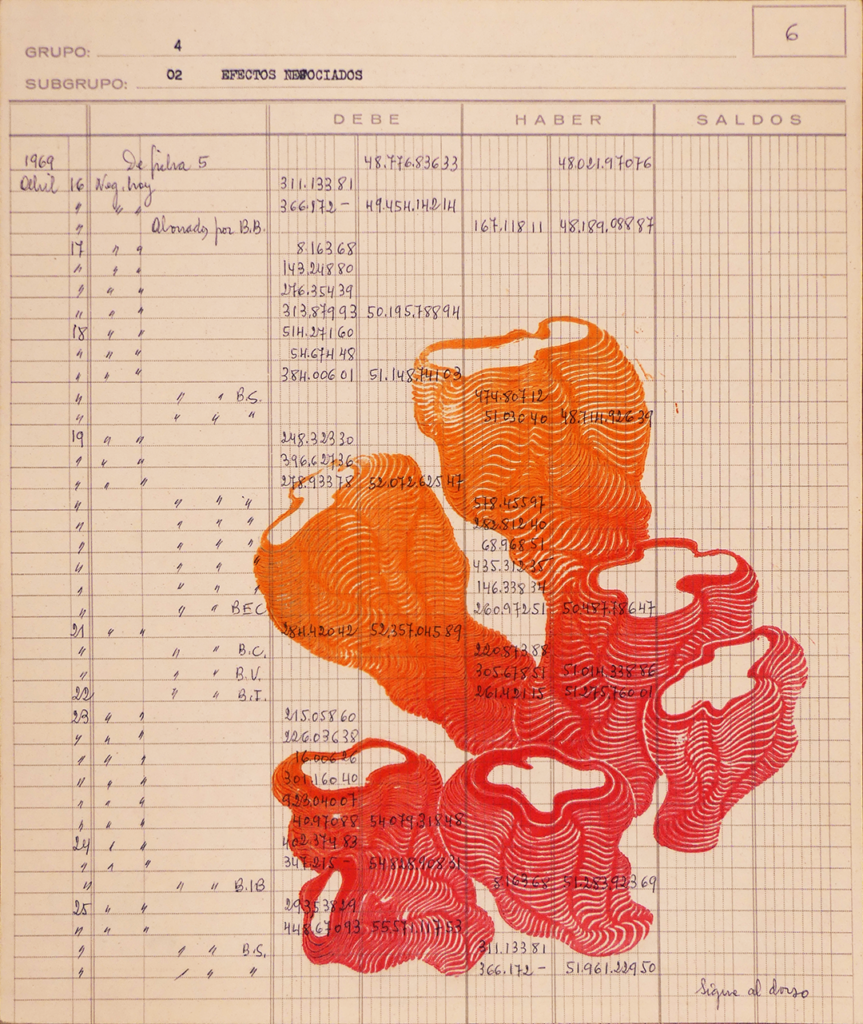 6
GRUPO: 4
SUBGRUPO: 02 EFECTOS NEGOCIADOS
DEBE HABER SALDOS
1969 De ficha 5 48.776.836 33 48.021.970 76
Abril 16 Neg. hoy 311.133 81
" " " 366.172 - 49.454.142 14
" Abonados por B.B. 167.118 11 48.189.088 87
17 " " 8.163 68
" " " 143.248 80
" " " 276.354 39
" " " 313.879 93 50.195.788 94
18 " " 514.271 60
" " " 54.674 48
" " " 384.006 01 51.148.741 03
" " " B.S. 474.807 12
" " " " 51.030 40 48.714.926 39
19 " " 248.323 30
" " " 396.627 36
" " " 278.933 78 52.072.625 47
" " " " 578.455 97
" " " " 282.812 40
" " " " 68.968 51
" " " " 435.312 35
" " " " 146.338 34
" " " BEC 260.972 51 50.487.786 47
21 " " 284.420 42 52.357.045 89
" " " B.C. 220.873 88
" " " B.V. 305.678 51 51.014.338 86
22 " " B.I. 261.421 15 51.275.760 01
23 " " 215.058 60
" " " 226.036 38
" " " 16.006 26
" " " 301.160 40
" " " 923.040 07
" " " 40.970 88 54.079.318 48
24 " " 402.374 83
" " " 347.215 - 54.828.908 31
" " " B.I.B 8.163 68 51.283.923 69
25 " " 293.538 29
" " " 448.670 93 55.571.117 53
" " " B.S. 311.133 81
" " " " 366.172 - 51.961.229 50
Sigue al dorso